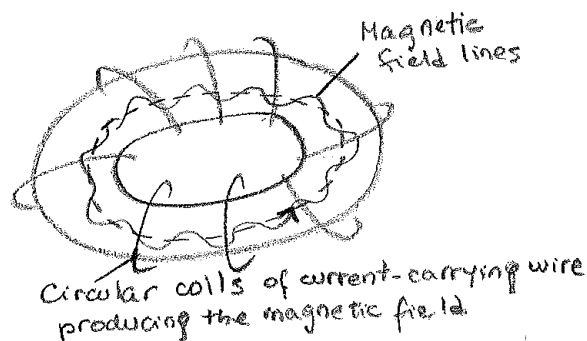 Magnetic
field lines
Circular coils of current-carrying wire
producing the magnetic field.